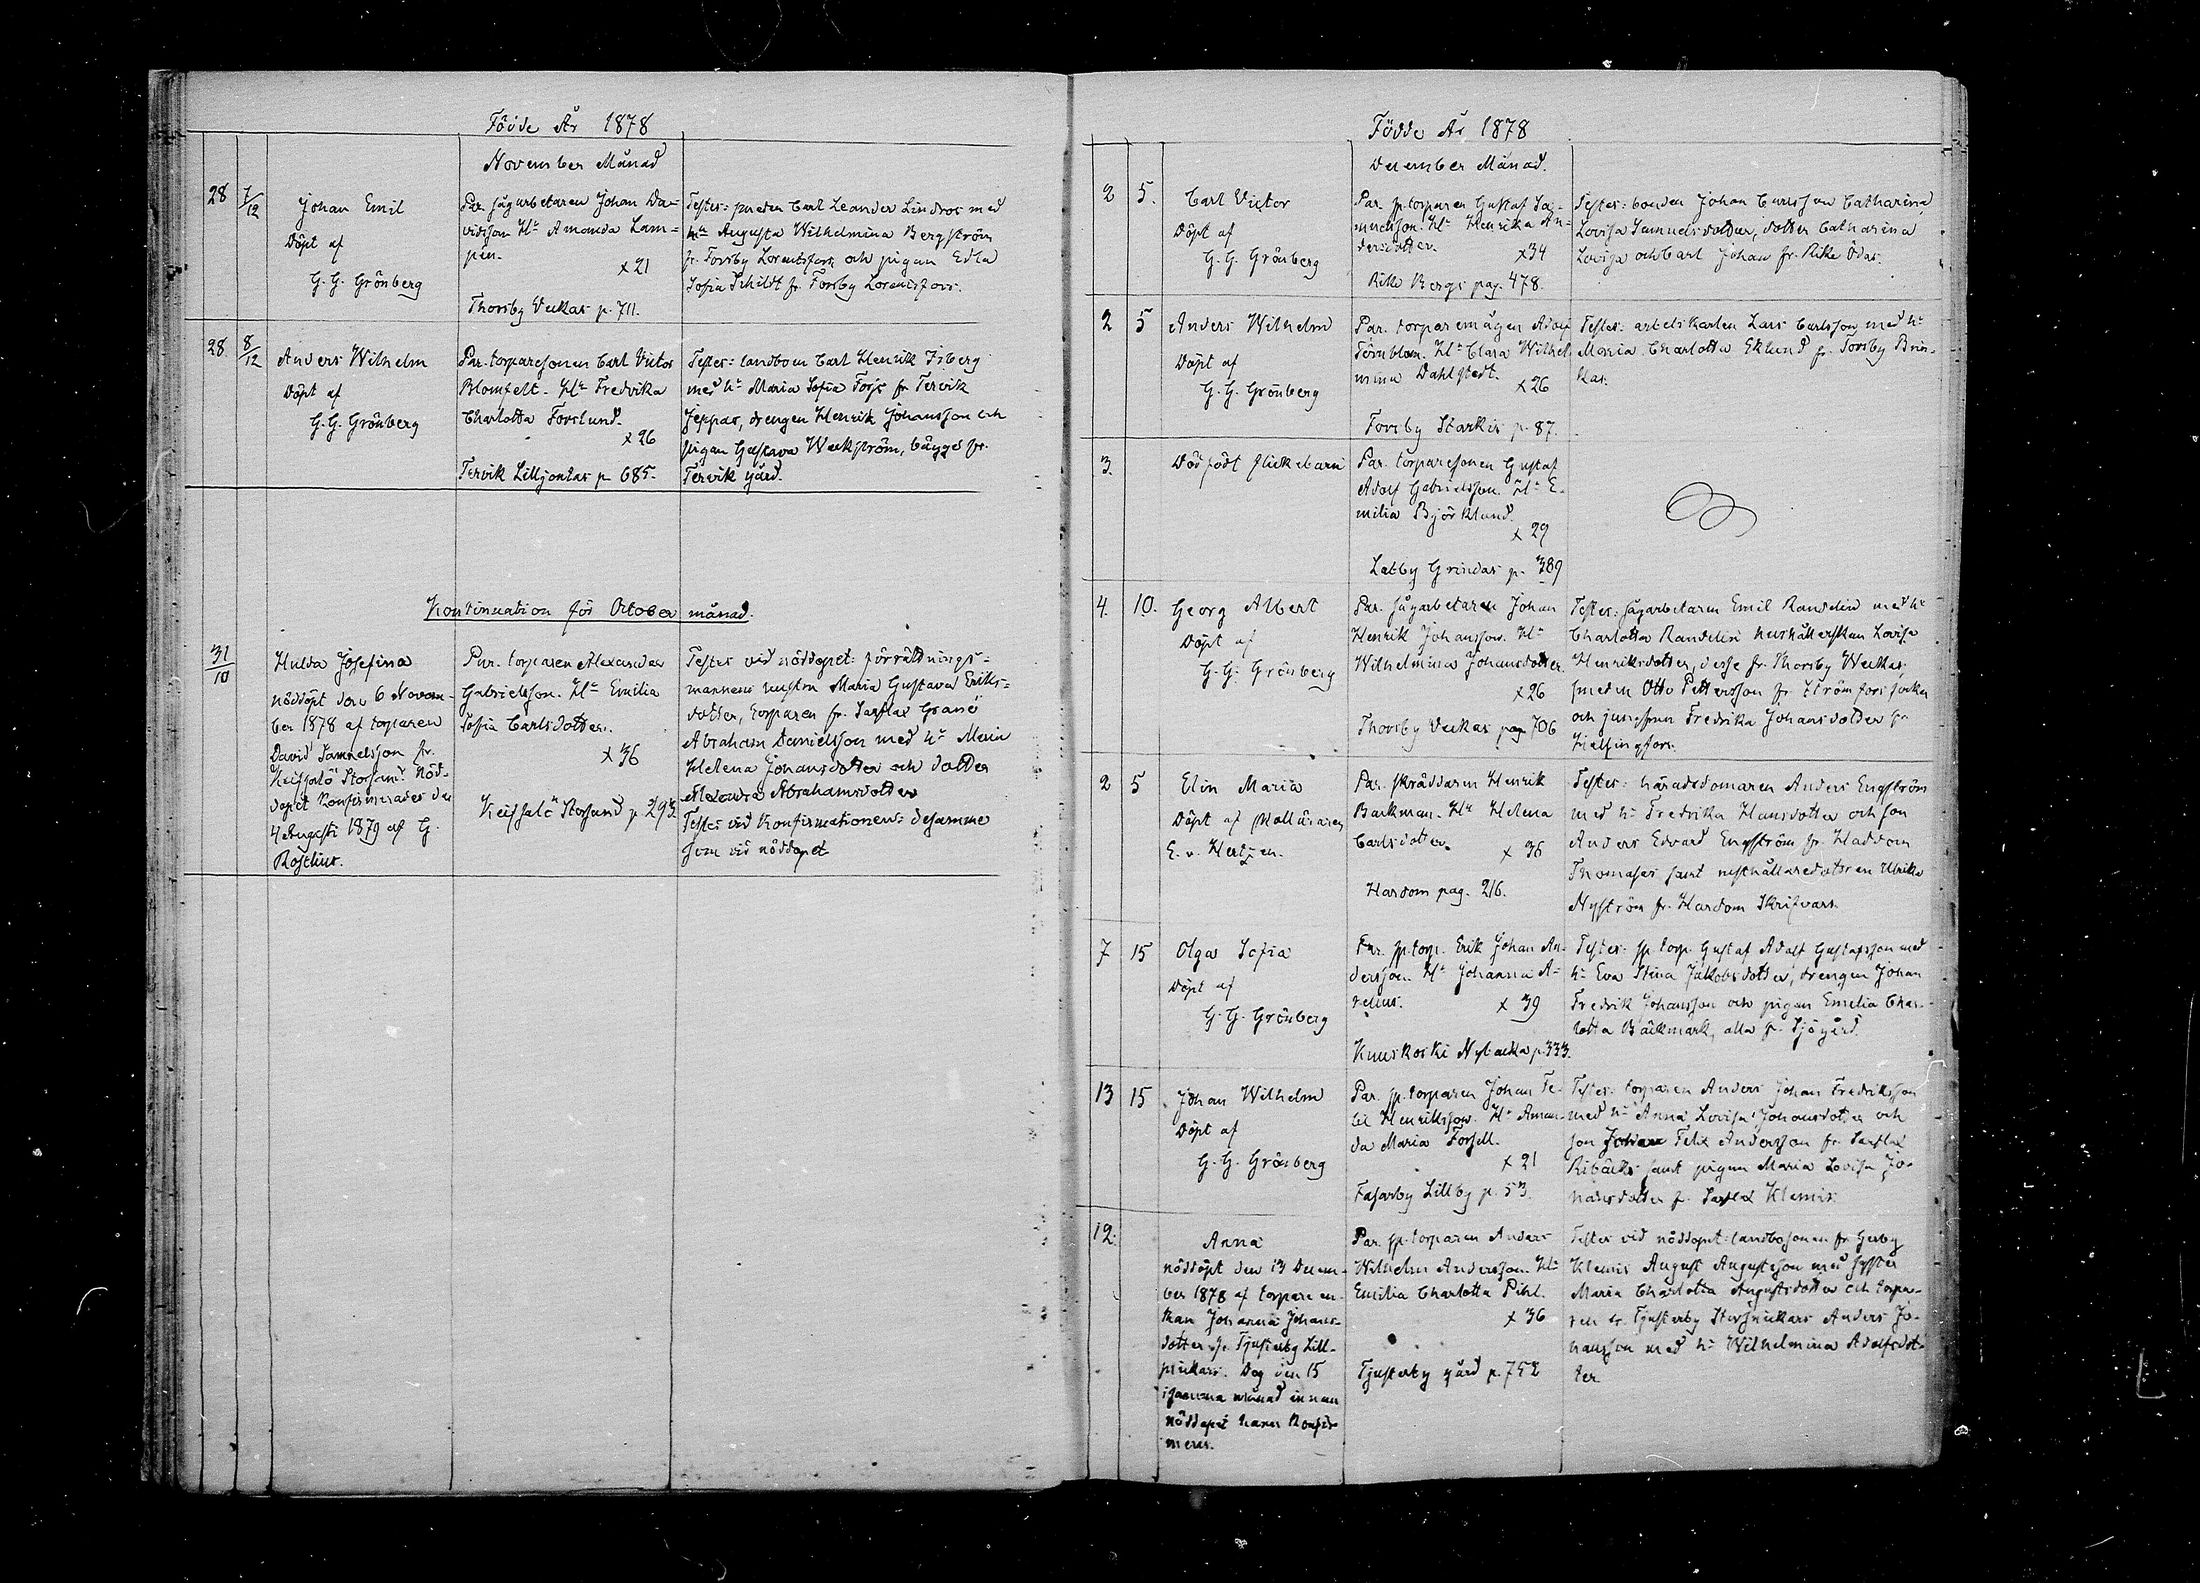 Födde År 1878
November Månad
28 7/12 Johan Emil
Döpt af
G. G. Grönberg
Par. sågarbetaren Johan Da-
vidsson. Hu Amanda Lam-
pén.
x 21
Thorsby Veckas p. 711.
Testes: smeden Carl Leander Lindros med
hu Augusta Wilhelmina Bergström
fr. Forsby Lorentsfors och pigan Edla
Sofia Schildt fr. Forsby Lorentsfors.
28 8/12 Anders Wilhelm
Döpt af
G. G. Grönberg
Par. torparesonen Carl Victor
Blomfelt. Hu Fredrika
Charlotta Forslund.
x 26
Tervik Lilljontas p. 685.
Testes: landbon Carl Henrik Isberg
med hu Maria Sofia Forss fr. Tervik
Jeppas, drengen Henrik Johansson och
pigan Gustava Weckström, bägge fr.
Tervik gård.
Kontinuation för October månad.
31/10 Hulda Josefina
nöddöpt den 6 Novem-
ber 1878 af torparen
David Samuelsson fr.
Keitsalö Storsund. Nöd-
dopet konfirmerades den
4 Augusti 1879 af G.
Roselius.
Par. torparen Alexander
Gabrielsson. Hu Emilia
Sofia Carlsdotter.
x 36
Keitsalö Storsund p. 293
Testes vid nöddopet: förrättnings-
mannens hustru Maria Gustava Eriks-
dotter, torparen fr. Sarflax Granö
Abraham Danielsson med hu Maria
Helena Johansdotter och dotter
Alexandra Abrahamsdotter
Testes vid konfirmationen: desamme
som vid nöddopet
Födde År 1878
December Månad.
2 5. Carl Victor
Döpt af
G. G. Grönberg
Par. sp. torparen Gustaf Sa-
muelsson. Hu Henrika An-
dersdotter.
x 34
Rike Bergs pag. 478.
Testes: bonden Johan Carlsson Catharina
Lovisa Samuelsdotter, dotter Catharina
Lovisa och Carl Johan fr. Rike Ödas.
2 5 Anders Wilhelm
Döpt af
G. G. Grönberg
Par. torparemågen Adolf
Törnblom. Hu Clara Wilhel-
mina Dahlstedt.
x 26
Forsby Starkis p. 87.
Testes: arbetskarlen Lars Carlsson med hu
Maria Charlotta Eklund fr. Forsby Brin-
kas.
3. Dödfödt flickebarn
Par. torparesonen Gustaf
Adolf Gabrielsson. Hu E-
milia Björklund.
x 29
Latby Grindas p. 389
4. 10. Georg Albert
Döpt af
G. G. Grönberg
Par. sågarbetaren Johan
Henrik Johansson. Hu
Wilhelmina Johansdotter.
x 26
Thorsby Veckas pag 706
Testes: sågarbetaren Emil Randelin med hu
Charlotta Randelin hushållerskan Lovisa
Henriksdotter, desse fr. Thorsby Weckas,
smeden Otto Pettersson fr. Strömfors socken
och jungfrun Fredrika Johansdotter fr.
Helsingfors.
2 5 Elin Maria
Döpt af Kollären
E. v. Hertzen.
Par. skräddaren Henrik
Backman. Hu Helena
Carlsdotter.
x 36
Hardom pag. 216.
Testes: häradsdomaren Anders Engström
med hu Fredrika Hansdotter och son
Anders Edvard Engström fr. Haddom
Thomases samt rusthållaredottren Ulrika
Nyström fr. Hardom Skrifvars.
7 15 Olga Sofia
Döpt af
G. G. Grönberg
Par. sp. torp. Erik Johan An-
dersson. Hu Johanna A-
relius.
x 39
Kuuskoski Nybacka p. 333.
Testes: sp. torp. Gustaf Adolf Gustafsson med
hu Eva Stina Jakobsdotter, drengen Johan
Fredrik Johansson och pigan Emelia Char-
lotta Bäckmark, alla fr. Sjögård.
13 15 Johan Wilhelm
Döpt af
G. G. Grönberg
Par. sp. torparen Johan Fe-
lix Henriksson. Hu Aman-
da Maria Forsell.
x 21
Fasarby Lillby p. 53.
Testes: torparen Anders Johan Fredriksson
med hu Anna Lovisa Johansdotter och
son Johan Felix Andersson fr. Sarflax
Ribäcks samt pigan Maria Lovisa Jo-
hansdotter fr. Sarflax Klemis.
12. Anna
nöddöpt den 13 Decem-
ber 1878 af torpareen-
kan Johanna Johans-
dotter fr. Tjusterby Lill-
snickars. Dog den 15
i samma månad innan
nöddopet hann konfir-
meras.
Par. sp. torparen Anders
Wilhelm Andersson. Hu
Emilia Charlotta Pihl.
x 36
Tjusterby gård p. 752
Testes vid nöddopet: landbosonen fr. Gerby
Klemis August Augustsson med syster
Maria Charlotta Augustsdotter och torpa-
ren fr. Tjusterby Storsnickars Anders Jo-
hansson med hu Wilhelmina Adolfsdot-
ter